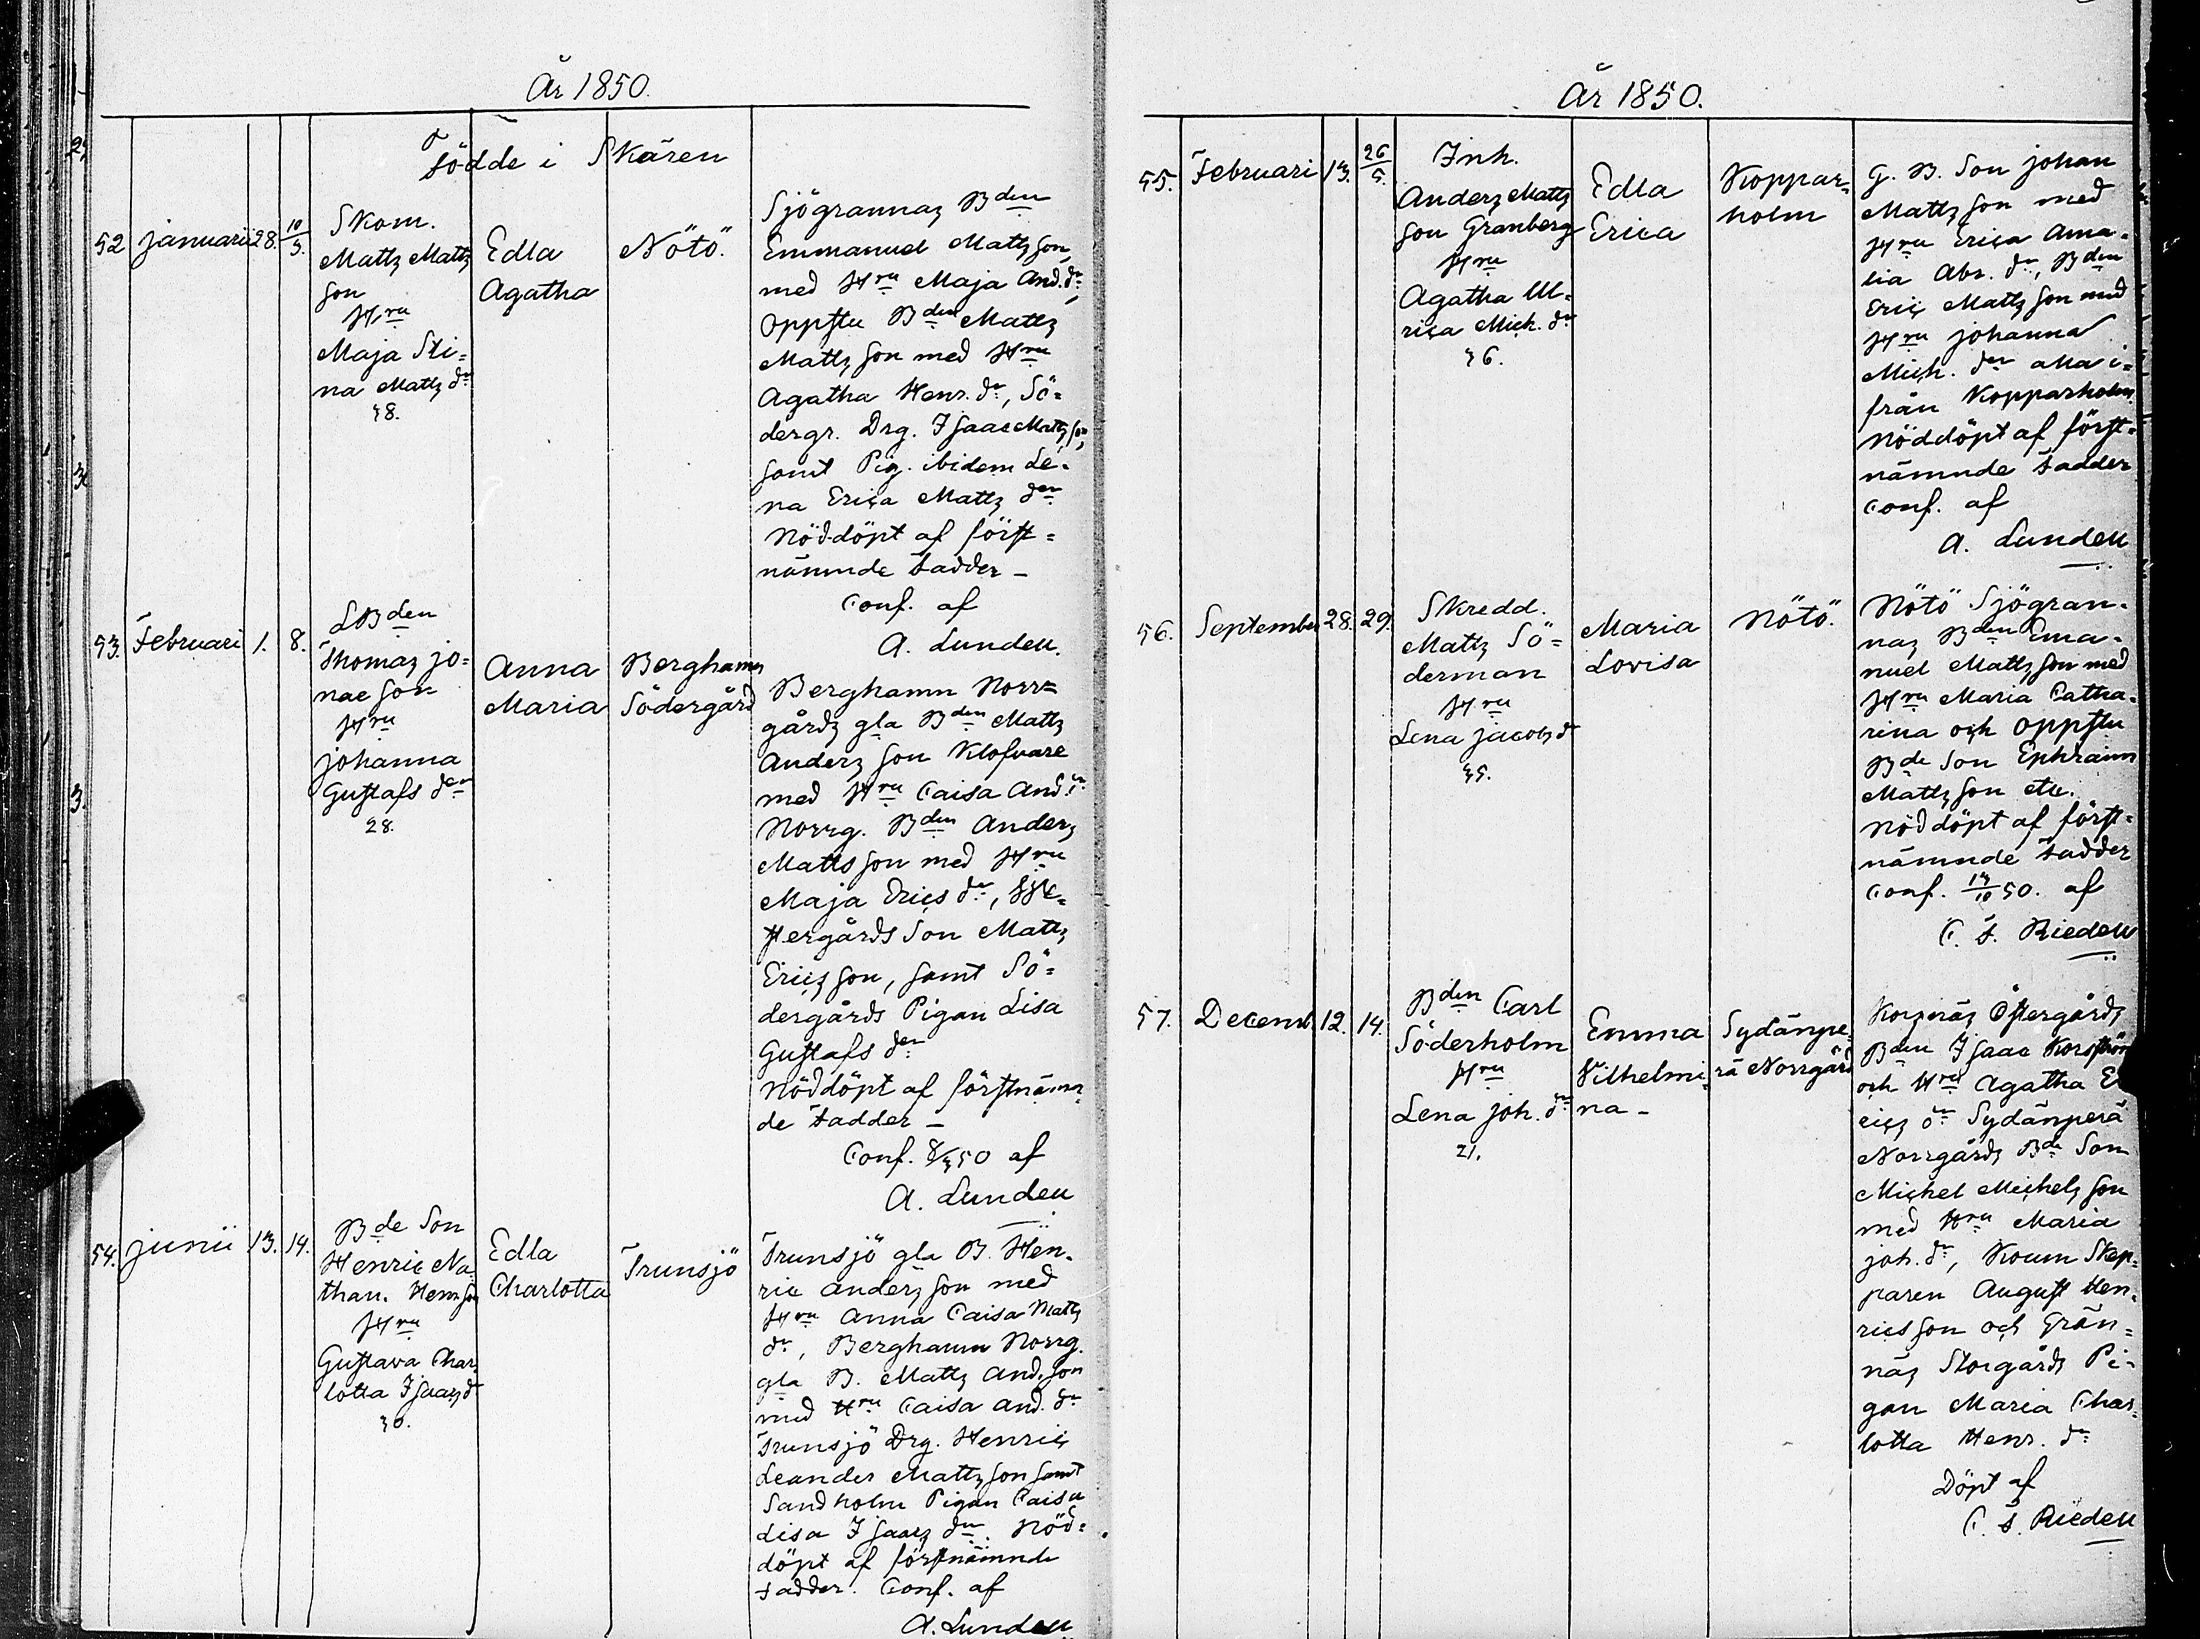 År 1850.
Födde i Skären
52
januarii
28.
10/3.
Skom.
Mattz Mattz
son
H,ru
Maja Sti=
na Mattz dr
38.
Edla
Agatha
Nötö.
Sjögrannaz Bden
Emmanuel Mattzson,
med Hru Maja And. dr,
Oppstu Bden Mattz
Mattzson med Hru
Agatha Henr. dr, Sö=
dergr. Drg. Isaac Mattzson,
samt Pig. ibidem Le=
na Erica Mattz der
Nöddöpt af först=
nämnde fadder –
Conf. af
A. Lunden.
53.
Februari
1.
8.
LBden
Thomaz jo=
nae son
Hru
johanna
Gustafs der
28.
Anna
Maria
Berghamn
Södergård
Berghamn Norr=
gårdz gla Bden Mattz
Anderz son Klofvare
med Hru Caisa And. dr
Norrg. Bden Anderz
Matts son med Hru
Maja Erics dr,
tergårds Son Mattz
Ericz son, samt Sö=
dergårds Pigan Lisa
Gustafs der
Nöddöpt af förstnämn=
de fadder –
Conf. 8/3 50 af
A. Lunden
54.
junii
13.
14.
Bde Son
Henric Na
than. Henr. son
Hru
Gustava Char
lotta Isaazd
30.
Edla
Charlotta
Trunsjö
Trunsjö gla B. Hen=
ric Anderz son med
Hru Anna Caisa Mattz
dr, Berghamn Norrg.
gla B. Mattz And. son
med Hru Caisa And. dr
Trunsjö Drg. Henric
Leander Mattzson samt
Sandholm Pigan Caisa
Lisa Isaacz dr. Nöd=
döpt af förstnämnde
fadder. Conf. af
A. Lunden
År 1850.
55.
Februari
13.
26/5.
Inh.
Anderz Mattz
son Granberg
Hru
Agatha Ul=
rica Mich. dr
36.
Edla
Erica
Koppar=
holm
G. B. Son johan
Mattz son med
Hru Erica Ama=
lia Abr. dr, Bden
Eric Mattz son med
Hru johanna
Mich. der alla i=
från Kopparholm.
Nöddöpt af först=
nämnde fadder
Conf. af
A. Lunden
56.
September
28.
29.
Skredd.
Mattz Sö=
derman
Hru
Lena jacobz d
35.
Maria
Lovisa
Nötö.
Nötö Sjögran=
naz Bden Ema=
nuel Mattz son med
Hru Maria Catha=
rina och Oppstu
Bde Son Ephraim
Mattz son etc.
Nöddöpt af först=
nämnde fadder
Conf. 13/10 50. af
C. F. Rieden
57.
Decemb.
12.
14.
Bden Carl
Söderholm
Hru
Lena joh. dr
21.
Emma
Vilhelmi=
na –
Sydänpe=
rä Norrgård
Korpnäz Östergårdz
Bden Isaac
och Hru Agatha E
ricz dr Sydänperä
Norrgårdz Bde Son
Michel Michelz son
med Hru Maria
joh. dr, Koum Skep=
paren August Hen=
rics son och Grän=
näz Storgårdz Pi=
gan Maria Char=
lotta Henr. dr
Döpt af
C. F. Rieden